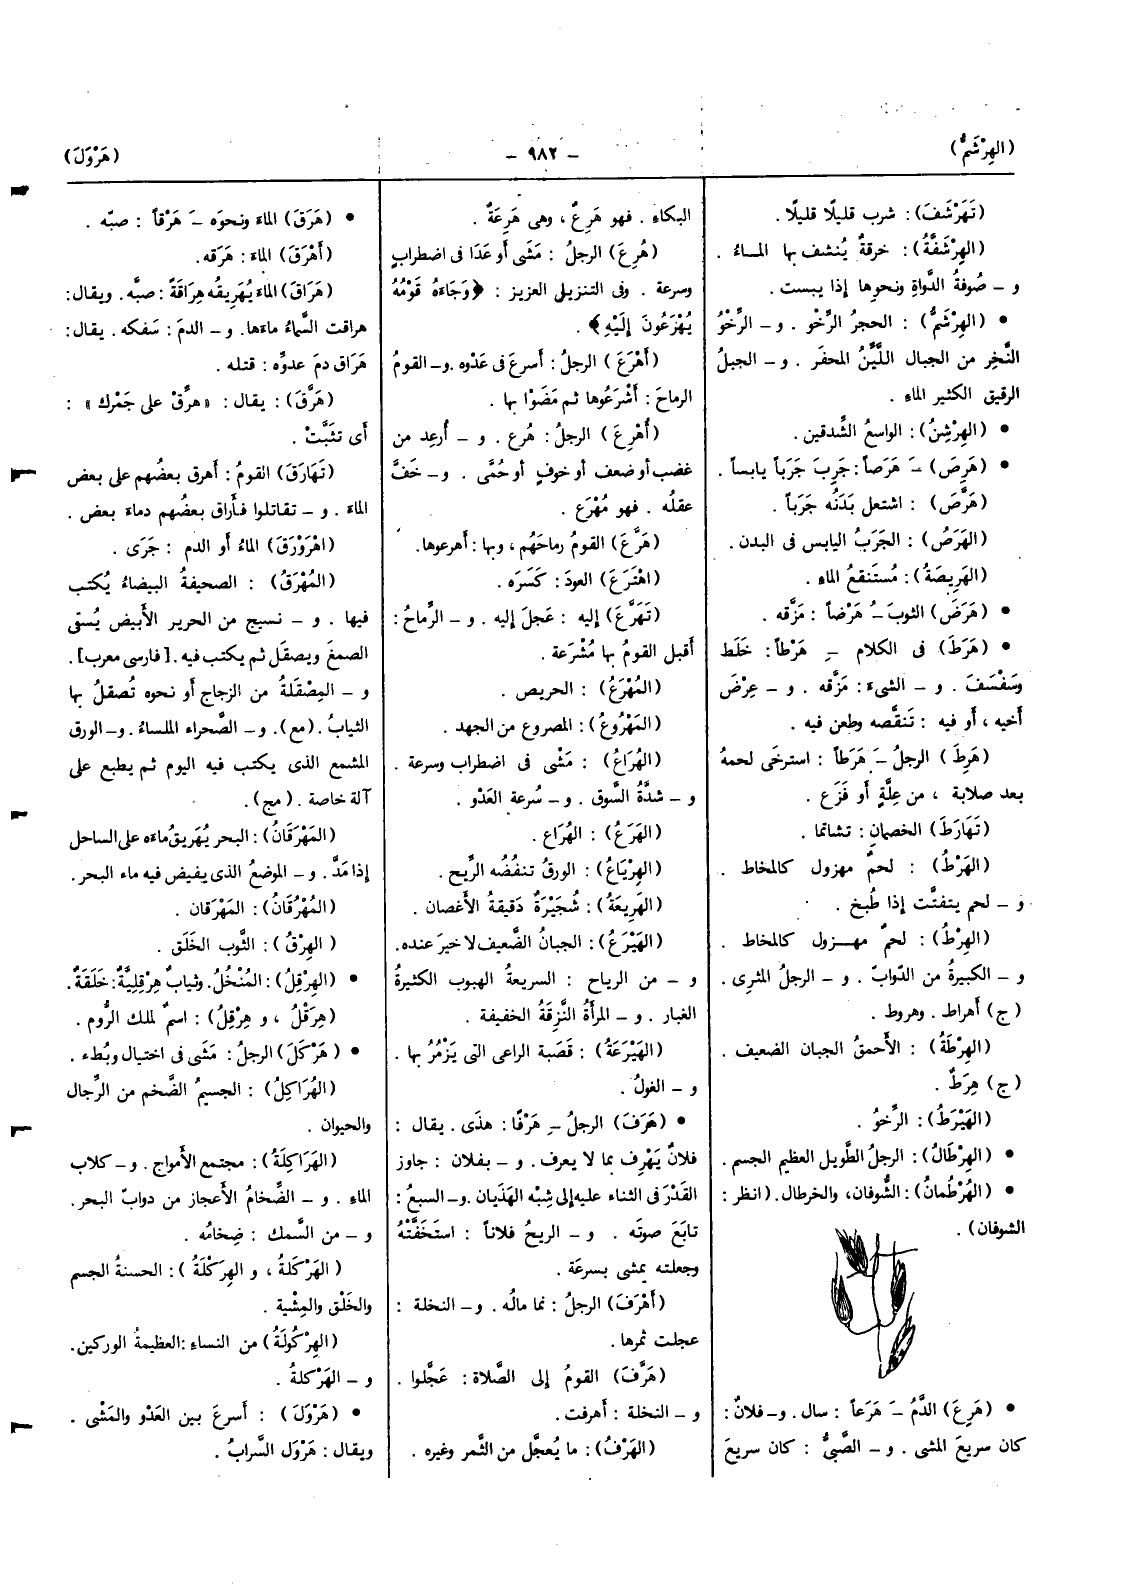 (الهِرْشَمُّ)
– ٩٨٢ –
(هَرْوَلَ)
(تَهَرْشَفَ): شرب قليلًا قليلًا.
(الهِرْشَفَّةُ): خرقةٌ يُنشف بها الماءُ .
و – صُوفةُ الدَّواةِ ونحوِها إذا يبست .
• (الهِرْشَمُّ) : الحجرُ الرِّخْو . و – الرِّخْوُ
النَّخِر من الجبال اللَّيِّنُ المحفَر . و – الجبلُ
الرقيق الكثير الماءِ .
• (الهِرْشِنُ): الواسعُ الشِّدقين .
• (هَرِصَ) –َ هَرَصاً: جَرِبَ جَرَباً يابساً .
(هَرَّصَ) : اشتعل بَدَنُه جَرَباً .
(الهَرَصُ) : الجَرَبُ اليابس فى البدن .
(الهَرِيصَةُ): مُستَنقعُ الماءِ .
• (هَرَضَ) الثوبَ –ُ هَرْضاً : مَزَّقه .
• (هَرَطَ) فى الكلام –ِ هَرْطاً: خَلَط
وَسَفْسَفَ . و – الشىءَ : مَزَّقه . و – عِرْضَ
أخيه ، أو فيه : تَنقَّصه وطعن فيه .
(هَرِطَ) الرجلُ –َ هَرَطاً : استرخَى لحمهُ
بعد صلابة ، من عِلَّةٍ أو فَزَع .
(تَهَارَطَ) الخصمان : تشاتما .
(الهَرْطُ) : لحمٌ مهزول كالمخاط .
و – لحم يتفتَّت إذا طُبخ .
(الهِرْطُ): لحمٌ مهزول كالمخاط .
و – الكبيرةُ من الدّوابّ . و – الرجلُ المثرِى .
(ج) أهراط . وهروط .
(الهِرْطَةُ) : الأحمقُ الجبان الضعيف .
(ج) هِرَطٌ .
(الهَيْرَطُ): الرِّخوُ .
• (الهِرْطَالُ): الرجلُ الطَّويل العظيم الجسم .
• (الهُرْطُمانُ): الشُّوفان، والخرطال. (انظر :
الشوفان) .
• (هَرِعَ) الدَّمُ –َ هَرَعاً : سال . و – فلانٌ :
كان سريعَ المشى . و – الصَّبىُّ : كان سريعَ
البكاءِ . فهو هَرِعٌ ، وهى هَرِعَةٌ .
(هُرِعَ) الرجلُ : مَشَى أو عَدَا فى اضطرابٍ
وسرعة . وفى التنزيل العزيز : ﴿وَجَاءَهُ قَوْمُهُ
يُهْرَعُونَ إِلَيْهِ﴾ .
(أَهْرَعَ) الرجلُ: أسرعَ فى عَدْوه . و – القومُ
الرماحَ : أَشْرَعُوها ثم مَضَوْا بها .
(أُهْرِعَ) الرجلُ: هُرِع . و – أُرعِد من
غضب أو ضعف أو خوفٍ أو حُمَّى . و – خَفَّ
عقلُه . فهو مُهْرَع .
(هَرَّعَ) القومُ رماحَهُم ، وبها : أهرعوها.
(اهْتَرَعَ) العودَ: كَسَرَه .
(تَهَرَّعَ) إليه : عَجِلَ إليه . و – الرِّماحُ :
أقبل القومُ بها مُشْرَعة .
(المُهْرَعُ) : الحريص .
(المَهْرُوعُ): المصروع من الجهد .
(الهُرَاعُ) : مَشْى فى اضطراب وسرعة .
و – شدَّةُ السَّوق . و – سُرعة العَدْو .
(الهَرَعُ) : الهُرَاع.
(الهِرْيَاعُ): الورقُ تنفُضُه الرِّيح .
(الهَرِيعَةُ): شُجَيْرَةٌ دَقيقةُ الأغصان .
(الهَيْرَعُ): الجبانُ الضَّعيف لا خيرَ عنده.
و – من الرياح : السريعةُ الهبوب الكثيرةُ
الغبار . و – المرأةُ النَّزِقَةُ الخفيفة .
(الهَيْرَعَةُ) : قَصَبة الراعى التى يَزْمُرُ بها .
و – الغولُ .
• (هَرَفَ) الرجلُ –ِ هَرْفًا: هذَى . يقال :
فلانٌ يَهْرِف بما لا يعرف . و – بفلان : جاوز
القَدْرَ فى الثناء عليه إلى شِبْه الهَذَيان . و – السبعُ :
تابَعَ صوتَه . و – الريحُ فلاناً : استَخَفَّتْهُ
وجعلته يمشى بسرعَة .
(أَهْرَفَ) الرجلُ : نما مالُه . و – النخلة :
عجلت ثمرها.
(هَرَّفَ) القومُ إلى الصَّلاة : عَجَّلوا .
و – النخلة : أهرفت.
(الهَرْفُ): ما يُعجَّل من الثَّمر وغيره .
• (هَرَقَ) الماءَ ونحوَه –َ هَرْقاً : صبّه .
(أَهْرَقَ) الماءَ: هَرَقه.
(هَرَاقَ) الماءَ يُهَرِيقُه هِرَاقَةً: صبَّه. ويقال:
هراقت السَّماءُ ماءَها. و – الدمَ : سَفكه . يقال:
هَرَاق دمَ عدوِّه : قتله .
(هَرَّقَ): يقال : «هرِّقْ على جَمْرك» :
أى تثبَّتْ .
(تَهَارَقَ) القومُ : أهرق بعضُهم على بعض
الماءَ . و – تقاتلوا فأَراق بعضُهم دماءَ بعض .
(اهْرَوْرَقَ) الماءُ أو الدم : جَرَى .
(المُهْرَقُ) : الصحيفةُ البيضاءُ يُكتب
فيها . و – نسيج من الحرير الأَبيض يُسقى
الصمغَ ويصقَل ثم يكتب فيه . [ فارسى معرب] .
و – المِصْقَلةُ من الزجاج أو نحوه تُصقلُ بها
الثيابُ . (مع). و – الصَّحراء الملساءُ . و – الورق
المشمع الذى يكتب فيه اليوم ثم يطبع على
آلة خاصة . (مج).
(المَهْرَقَانُ): البحر يُهَرِيقُ ماءَه على الساحل
إذا مَدَّ . و – الموضعُ الذى يفيض فيه ماء البحر.
(المُهْرُقَانُ): المَهْرَقان .
(الهِرْقُ) : الثَّوب الخَلَق .
• (الهِرْقِلُ): المُنْخُلُ. وثيابٌ هِرْقِلِيَّةٌ: خَلَقَةٌ.
(هِرَقْلُ ، و هِرْقِلُ) : اسمٌ لملك الرُّوم .
• (هَرْكَلَ) الرجلُ: مَشَى فى اختيال وبُطء .
(الهُرَاكِلُ) : الجسيمُ الضَّخم من الرِّجال
والحيوان .
(الهَرَاكِلَةُ): مجتمع الأمواج . و – كلاب
الماءِ . و – الضِّخامُ الأَعجاز من دوابّ البحر.
و – من السَّمك : ضِخامُه .
( الهَرْكَلَةُ ، و الهِرَكْلَةُ ) : الحسنةُ الجسم
والخَلْق والمِشْية .
(الهِرْكَوْلَةُ) من النساءِ : العظيمةُ الوركين.
و – الهَرْكلةُ .
• (هَرْوَلَ) : أسرعَ بين العَدْو والمَشْى .
ويقال : هَرْوَل السَّرابُ .